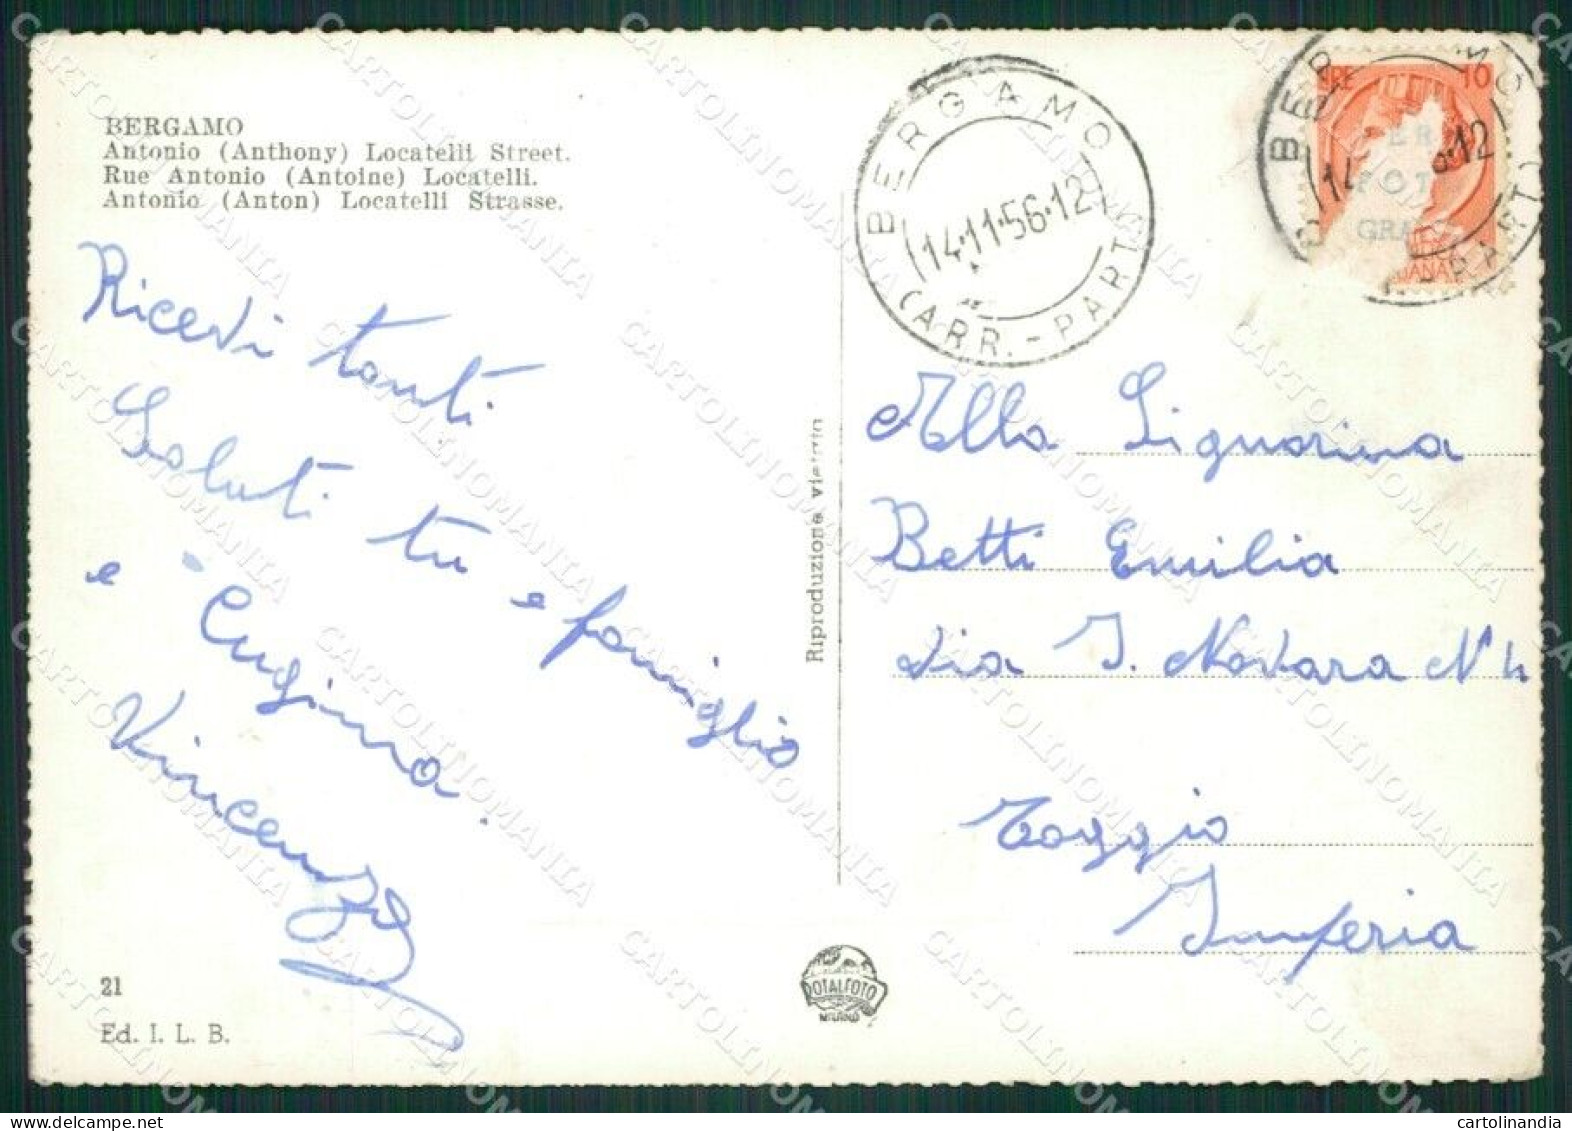 BERGAMO
Antonio (Anthony) Locatelli Street.
Rue Antonio (Antoine) Locatelli.
Antonio (Anton) Locatelli Strasse.
Ricevi tanti
Saluti tu e famiglia
e Cugina.
Vincenzo
21
Ed. I. L. B.
Riproduzione vietata
ROTALFOTO
MILANO
BERGAMO
14·11·56·12
(ARR.-PART
LIRE 10
BER
12
PART
Alla Signorina
Betti Emilia
Via I. Novara N 4
Taggia
Imperia
CARTOLINOMANIA
cartolinandia